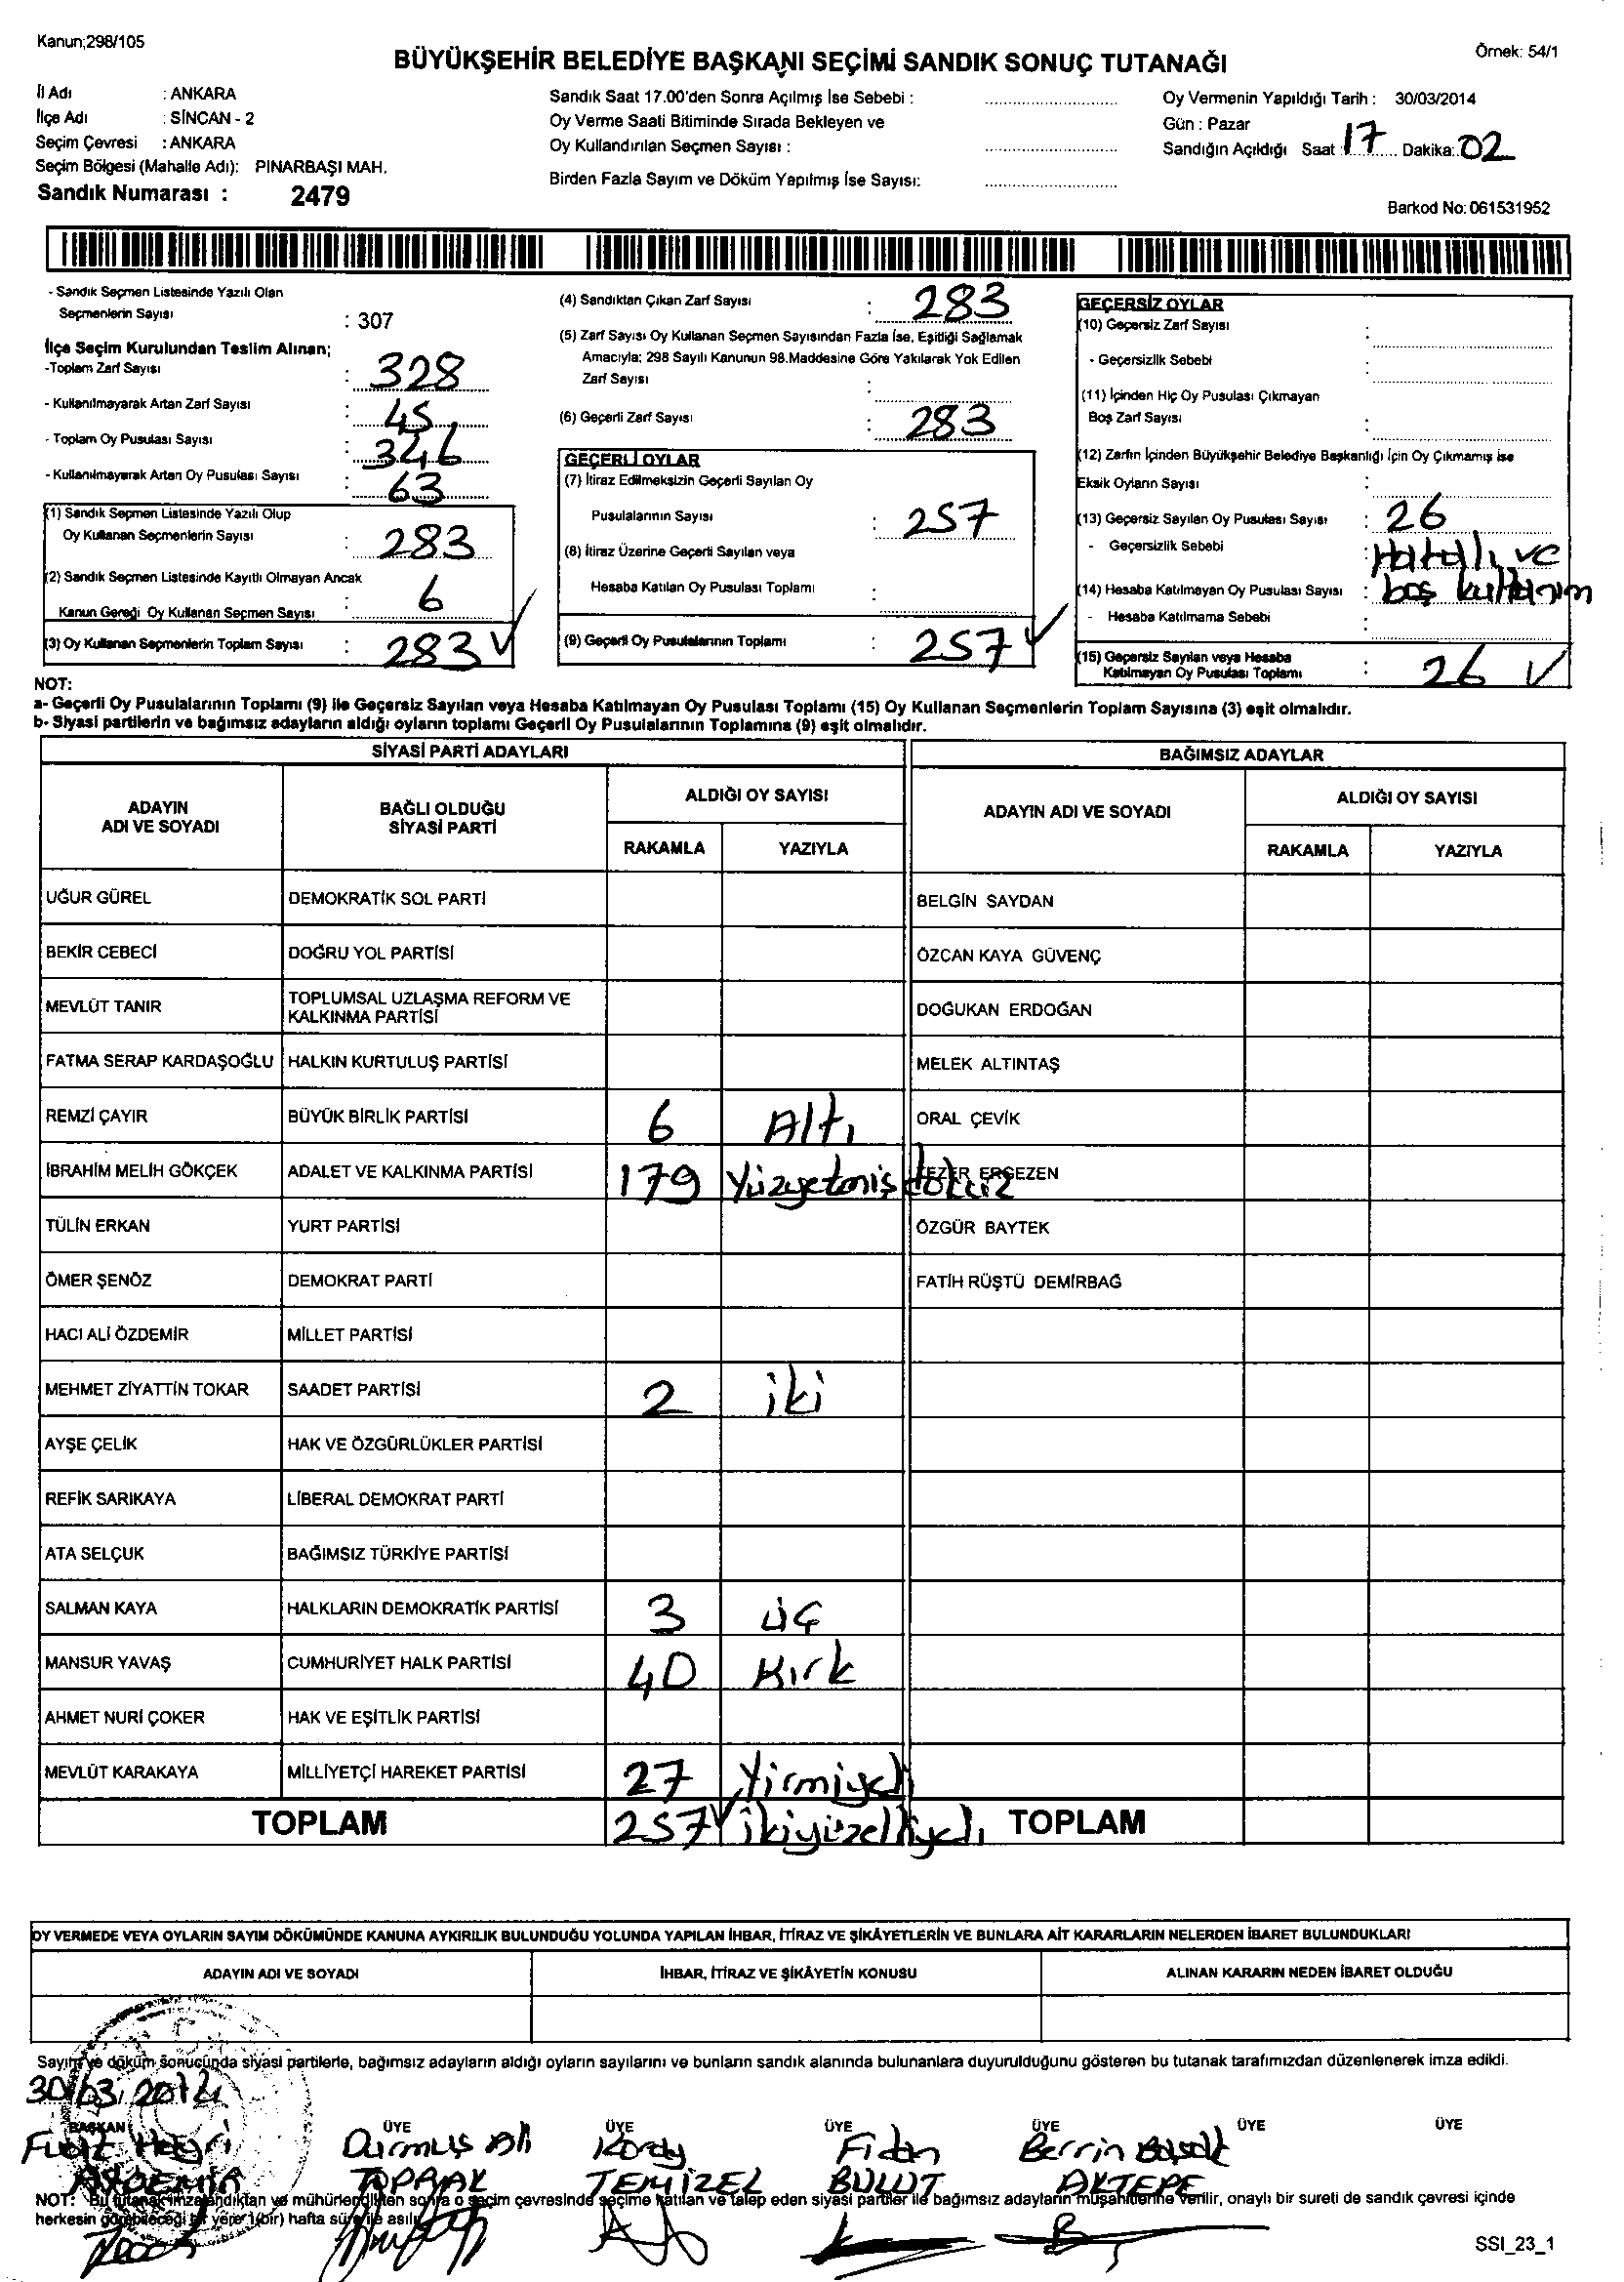 Kanun;298/105
Örnek: 54/1
BÜYÜKŞEHİR BELEDİYE BAŞKANI SEÇİMİ SANDIK SONUÇ TUTANAĞI
İl Adı : ANKARA
İlçe Adı : SİNCAN - 2
Seçim Çevresi : ANKARA
Seçim Bölgesi (Mahalle Adı): PINARBAŞI MAH.
Sandık Numarası : 2479
Sandık Saat 17.00'den Sonra Açılmış İse Sebebi :
Oy Verme Saati Bitiminde Sırada Bekleyen ve
Oy Kullandırılan Seçmen Sayısı :
Birden Fazla Sayım ve Döküm Yapılmış İse Sayısı:
Oy Vermenin Yapıldığı Tarih : 30/03/2014
Gün : Pazar
Sandığın Açıldığı Saat : 17 Dakika: 02
Barkod No: 061531952
- Sandık Seçmen Listesinde Yazılı Olan
Seçmenlerin Sayısı : 307
İlçe Seçim Kurulundan Teslim Alınan;
-Toplam Zarf Sayısı : 328
- Kullanılmayarak Artan Zarf Sayısı : 45
- Toplam Oy Pusulası Sayısı : 346
- Kullanılmayarak Artan Oy Pusulası Sayısı : 63
(1) Sandık Seçmen Listesinde Yazılı Olup
Oy Kullanan Seçmenlerin Sayısı : 283
(2) Sandık Seçmen Listesinde Kayıtlı Olmayan Ancak
Kanun Gereği Oy Kullanan Seçmen Sayısı : 6
(3) Oy Kullanan Seçmenlerin Toplam Sayısı : 283 ✓
(4) Sandıktan Çıkan Zarf Sayısı : 283
(5) Zarf Sayısı Oy Kullanan Seçmen Sayısından Fazla İse, Eşitliği Sağlamak
Amacıyla; 298 Sayılı Kanunun 98.Maddesine Göre Yakılarak Yok Edilen
Zarf Sayısı :
(6) Geçerli Zarf Sayısı : 283
GEÇERLİ OYLAR
(7) İtiraz Edilmeksizin Geçerli Sayılan Oy
Pusulalarının Sayısı : 257
(8) İtiraz Üzerine Geçerli Sayılan veya
Hesaba Katılan Oy Pusulası Toplamı :
(9) Geçerli Oy Pusulalarının Toplamı : 257 ✓
GEÇERSİZ OYLAR
(10) Geçersiz Zarf Sayısı :
- Geçersizlik Sebebi :
(11) İçinden Hiç Oy Pusulası Çıkmayan
Boş Zarf Sayısı :
(12) Zarfın İçinden Büyükşehir Belediye Başkanlığı İçin Oy Çıkmamış ise
Eksik Oyların Sayısı :
(13) Geçersiz Sayılan Oy Pusulası Sayısı : 26
- Geçersizlik Sebebi : Hatalı ve
(14) Hesaba Katılmayan Oy Pusulası Sayısı : boş kullanım
- Hesaba Katılmama Sebebi :
(15) Geçersiz Sayılan veya Hesaba
Katılmayan Oy Pusulası Toplamı : 26 ✓
NOT:
a- Geçerli Oy Pusulalarının Toplamı (9) ile Geçersiz Sayılan veya Hesaba Katılmayan Oy Pusulası Toplamı (15) Oy Kullanan Seçmenlerin Toplam Sayısına (3) eşit olmalıdır.
b- Siyasi partilerin ve bağımsız adayların aldığı oyların toplamı Geçerli Oy Pusulalarının Toplamına (9) eşit olmalıdır.
SİYASİ PARTİ ADAYLARI
ADAYIN ADI VE SOYADI | BAĞLI OLDUĞU SİYASİ PARTİ | ALDIĞI OY SAYISI
RAKAMLA | YAZIYLA
UĞUR GÜREL | DEMOKRATİK SOL PARTİ
BEKİR CEBECİ | DOĞRU YOL PARTİSİ
MEVLÜT TANIR | TOPLUMSAL UZLAŞMA REFORM VE KALKINMA PARTİSİ
FATMA SERAP KARDAŞOĞLU | HALKIN KURTULUŞ PARTİSİ
REMZİ ÇAYIR | BÜYÜK BİRLİK PARTİSİ | 6 | Altı
İBRAHİM MELİH GÖKÇEK | ADALET VE KALKINMA PARTİSİ | 179 | Yüzyetmişdokuz
TÜLİN ERKAN | YURT PARTİSİ
ÖMER ŞENÖZ | DEMOKRAT PARTİ
HACI ALİ ÖZDEMİR | MİLLET PARTİSİ
MEHMET ZİYATTİN TOKAR | SAADET PARTİSİ | 2 | iki
AYŞE ÇELİK | HAK VE ÖZGÜRLÜKLER PARTİSİ
REFİK SARIKAYA | LİBERAL DEMOKRAT PARTİ
ATA SELÇUK | BAĞIMSIZ TÜRKİYE PARTİSİ
SALMAN KAYA | HALKLARIN DEMOKRATİK PARTİSİ | 3 | üç
MANSUR YAVAŞ | CUMHURİYET HALK PARTİSİ | 40 | Kırk
AHMET NURİ ÇOKER | HAK VE EŞİTLİK PARTİSİ
MEVLÜT KARAKAYA | MİLLİYETÇİ HAREKET PARTİSİ | 27 | Yirmiyedi
TOPLAM | 257 ✓ | ikiyüzelliyedi
BAĞIMSIZ ADAYLAR
ADAYIN ADI VE SOYADI | ALDIĞI OY SAYISI
RAKAMLA | YAZIYLA
BELGİN SAYDAN
ÖZCAN KAYA GÜVENÇ
DOĞUKAN ERDOĞAN
MELEK ALTINTAŞ
ORAL ÇEVİK
ERGEZEN
ÖZGÜR BAYTEK
FATİH RÜŞTÜ DEMİRBAĞ
TOPLAM
OY VERMEDE VEYA OYLARIN SAYIM DÖKÜMÜNDE KANUNA AYKIRILIK BULUNDUĞU YOLUNDA YAPILAN İHBAR, İTİRAZ VE ŞİKÂYETLERİN VE BUNLARA AİT KARARLARIN NELERDEN İBARET BULUNDUKLARI
ADAYIN ADI VE SOYADI | İHBAR, İTİRAZ VE ŞİKÂYETİN KONUSU | ALINAN KARARIN NEDEN İBARET OLDUĞU
Sayım ve döküm sonucunda siyasi partilerle, bağımsız adayların aldığı oyların sayılarını ve bunların sandık alanında bulunanlara duyurulduğunu gösteren bu tutanak tarafımızdan düzenlenerek imza edildi.
30/03/2014
BAŞKAN ÜYE ÜYE ÜYE ÜYE ÜYE ÜYE
Durmuş Ali Koray Fidan Berrin
AKDEMİR TOPRAK TEMİZEL BULUT AKTEPE
NOT: Bu tutanak imzalandıktan ve mühürlendikten sonra o seçim çevresinde seçime katılan ve talep eden siyasi partiler ile bağımsız adayların müşahitlerine verilir, onaylı bir sureti de sandık çevresi içinde
herkesin görebileceği bir yere 1(bir) hafta süre ile asılır.
SSI_23_1